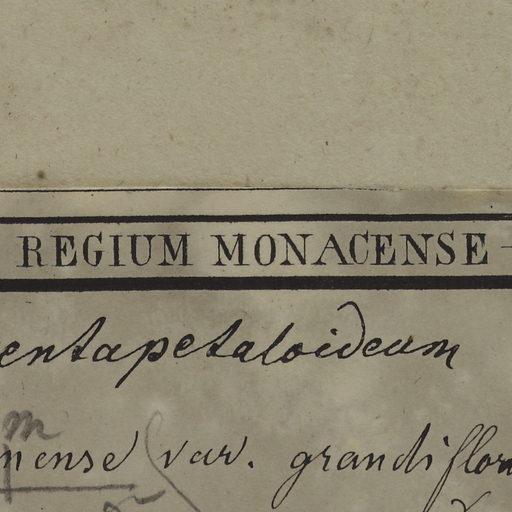 REGIUM MONACENSE
entapetaloideum
m
nense var. grandiflor